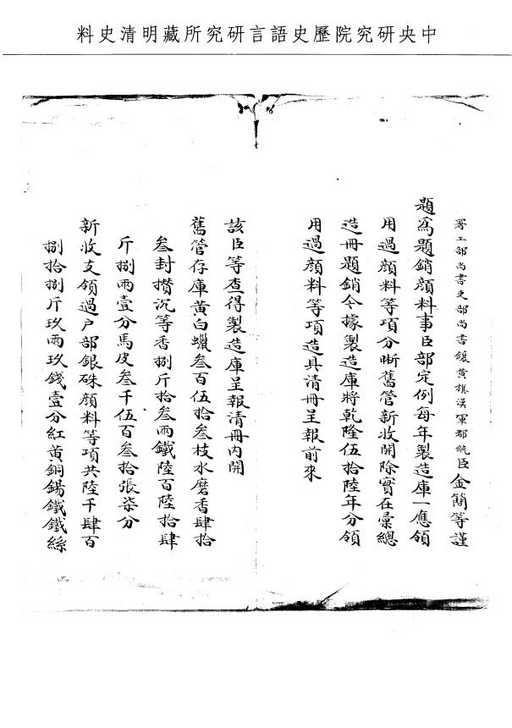 中央研究院歷史語言研究所藏明清史料
署工部尚書吏部尚書鑲黃旗漢軍都統臣金簡等謹
題為題銷顏料事臣部定例每年製造庫一應領
用過顏料等項分晰舊管新收開除實在彙總
造冊題銷今據製造庫將乾隆伍拾陸年分領
用過顏料等項造具清冊呈報前來
該臣等查得製造庫呈報清冊內開
舊管存庫黃白蠟叁百伍拾叁枝水磨香肆拾
叁封攢沉等香捌斤拾叁兩鐵陸百陸拾肆
斤捌兩壹分馬皮叁千伍百叁拾張柒分
新收支領過戶部銀硃顏料等項共陸千肆百
捌拾捌斤玖兩玖錢壹分紅黃銅錫鐵鐵絲